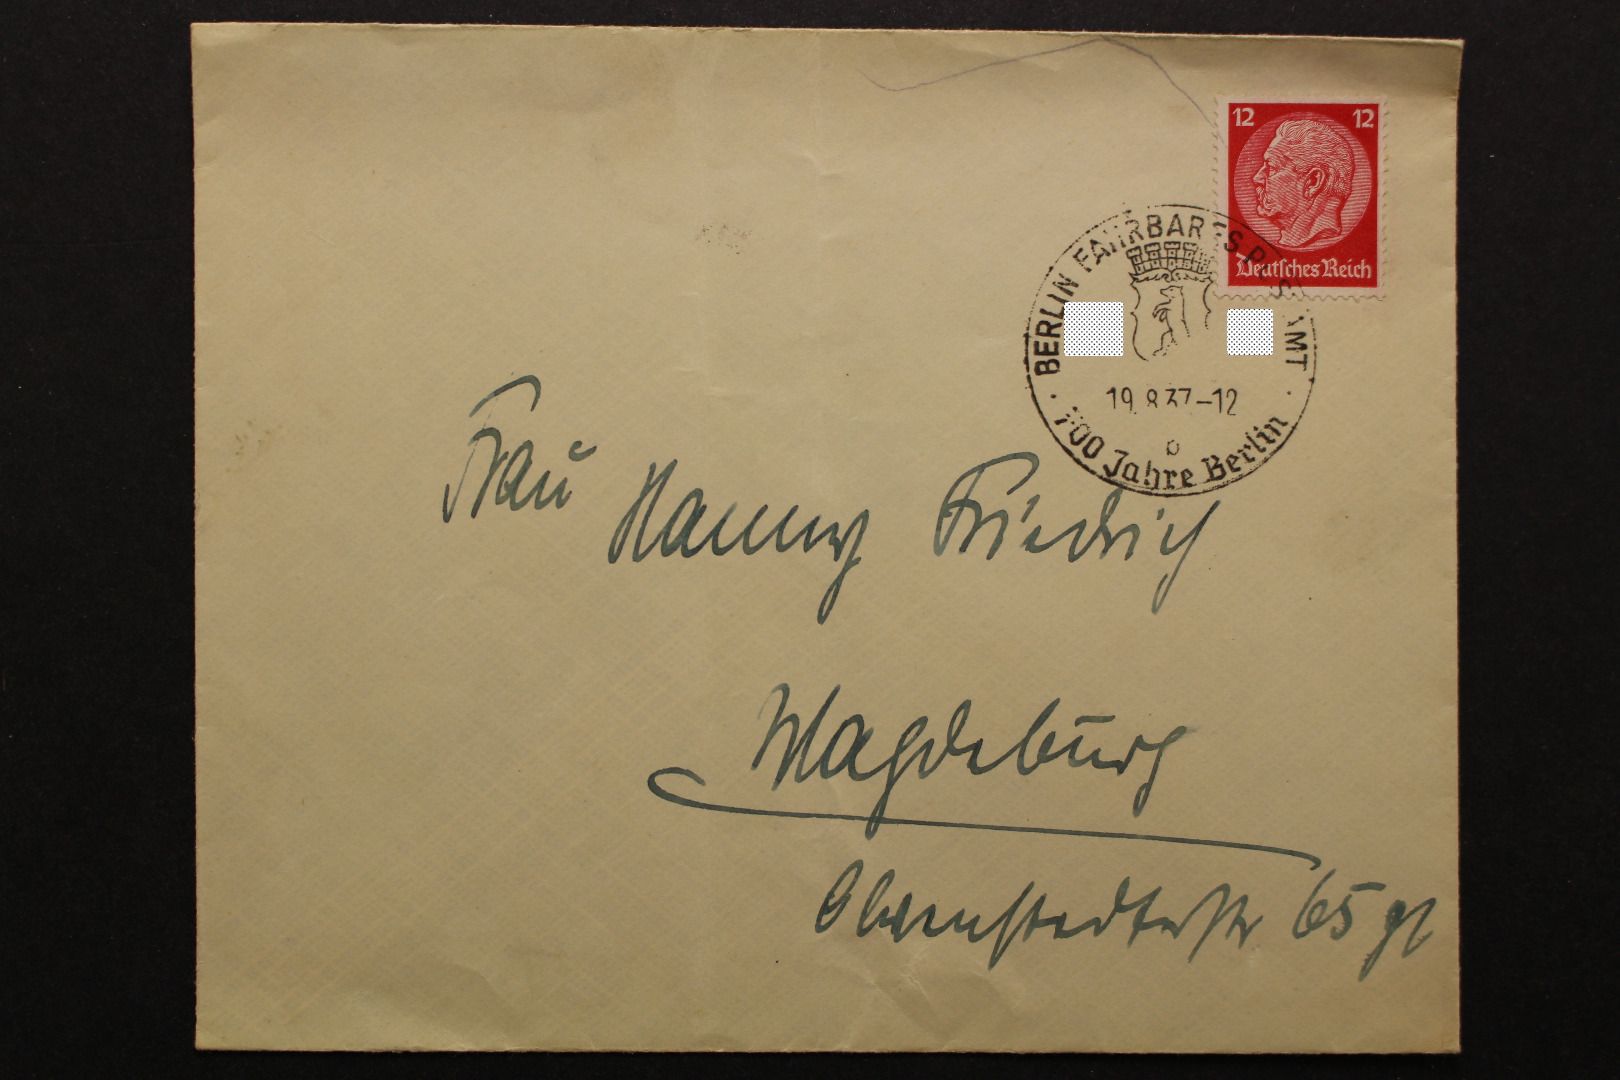 12 12
Deutsches Reich
BERLIN FAHRBARES POSTAMT
19.8.37-12
b
700 Jahre Berlin
Frau
Hanny Friedrich
Magdeburg
Olvenstedterstr 65 gt